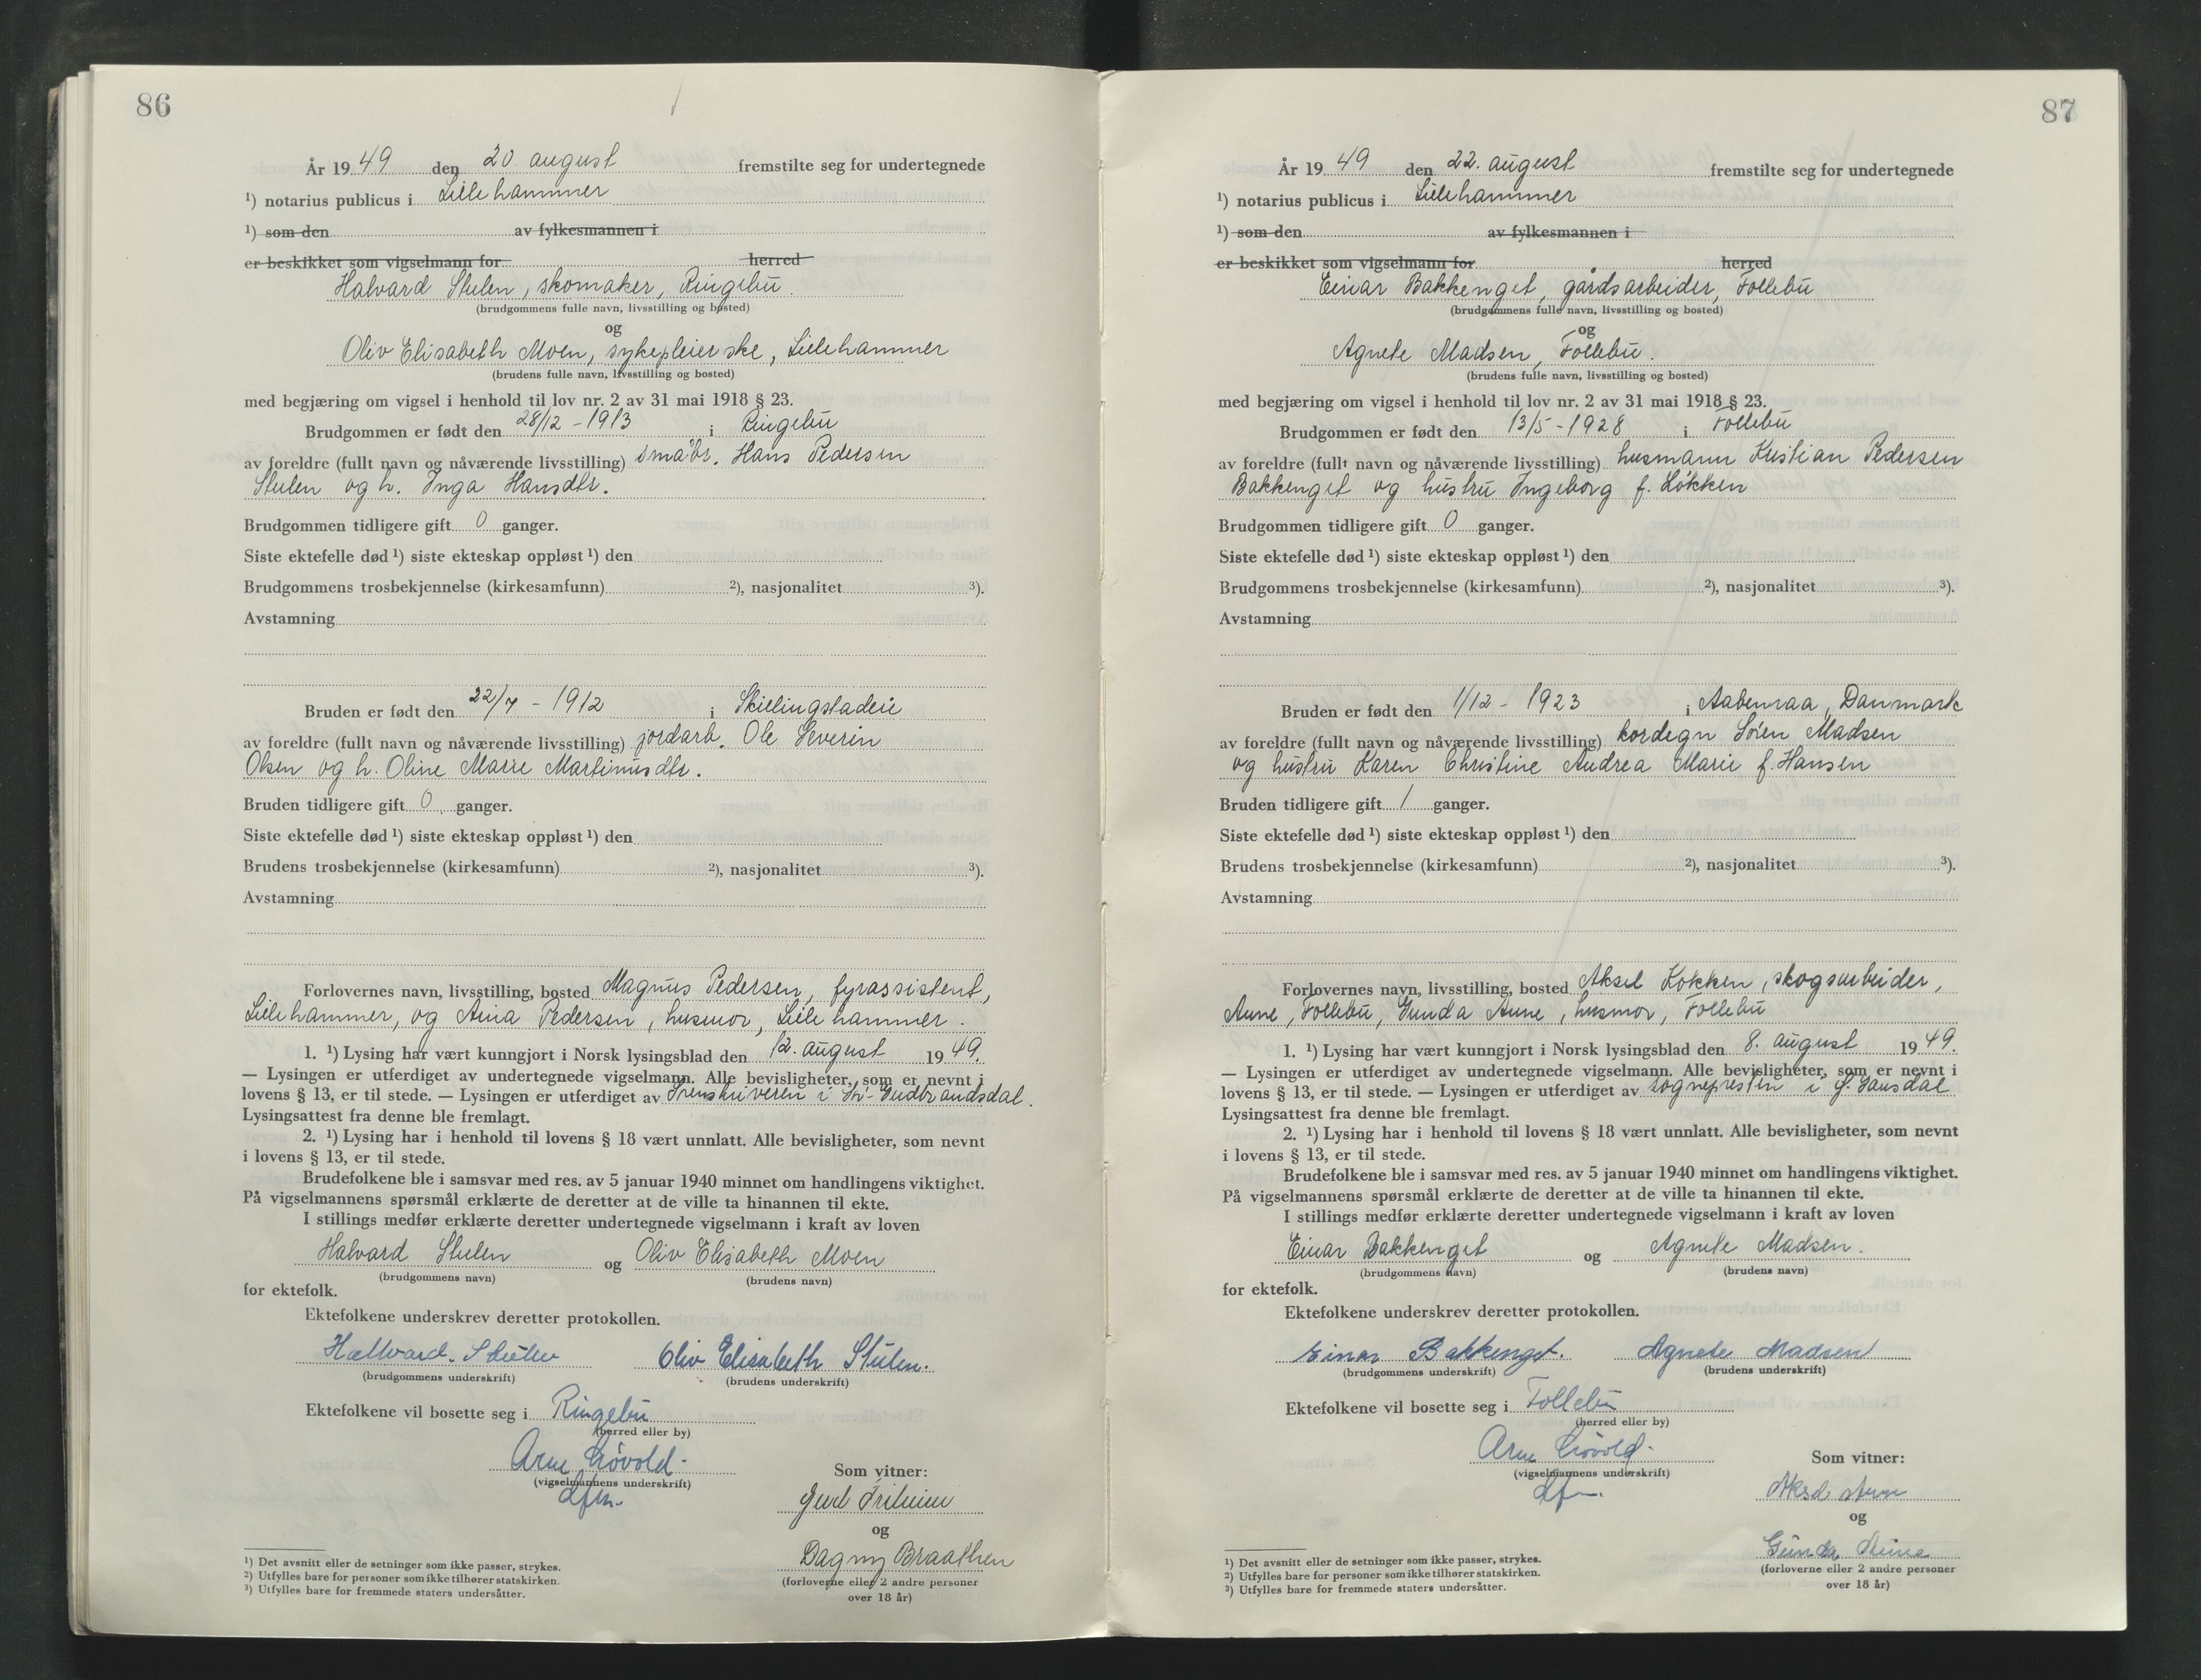 86
År 1949 den 20. august fremstilte seg for undertegnede
¹) notarius publicus i Lillehammer
¹) som den av fylkesmannen i
er beskikket som vigselmann for herred
Halvard Stulen, skomaker, Ringebu.
(brudgommens fulle navn, livsstilling og bosted)
og
Oliv Elisabeth Moen, sykepleierske, Lillehammer
(brudens fulle navn, livsstilling og bosted)
med begjæring om vigsel i henhold til lov nr. 2 av 31 mai 1918 § 23.
Brudgommen er født den 28/12 - 1913 i Ringebu
av foreldre (fullt navn og nåværende livsstilling) småbr. Hans Pedersen
Stulen og h. Inga Hansdtr.
Brudgommen tidligere gift 0 ganger.
Siste ektefelle død ¹) siste ekteskap oppløst ¹) den
Brudgommens trosbekjennelse (kirkesamfunn) ²), nasjonalitet ³).
Avstamning
Bruden er født den 22/7 - 1912 i Skillingstadeie
av foreldre (fullt navn og nåværende livsstilling) jordarb. Ole Severin
Olsen og h. Oline Marie Martinusdtr.
Bruden tidligere gift 0 ganger.
Siste ektefelle død ¹) siste ekteskap oppløst ¹) den
Brudens trosbekjennelse (kirkesamfunn) ²), nasjonalitet ³).
Avstamning
Forlovernes navn, livsstilling, bosted Magnus Pedersen, fyrassistent,
Lillehammer, og Aina Pedersen, husmor, Lillehammer.
1. ¹) Lysing har vært kunngjort i Norsk lysingsblad den 12. august 1949.
— Lysingen er utferdiget av undertegnede vigselmann. Alle bevisligheter, som er nevnt i
lovens § 13, er til stede. — Lysingen er utferdiget av Sorenskriveren i Sør-Gudbrandsdal.
Lysingsattest fra denne ble fremlagt.
2. ¹) Lysing har i henhold til lovens § 18 vært unnlatt. Alle bevisligheter, som nevnt
i lovens § 13, er til stede.
Brudefolkene ble i samsvar med res. av 5 januar 1940 minnet om handlingens viktighet.
På vigselmannens spørsmål erklærte de deretter at de ville ta hinannen til ekte.
I stillings medfør erklærte deretter undertegnede vigselmann i kraft av loven
Halvard Stulen og Oliv Elisabeth Moen
(brudgommens navn) (brudens navn)
for ektefolk.
Ektefolkene underskrev deretter protokollen.
Hallvard. Stulen Oliv Elisabeth Stulen.
(brudgommens underskrift) (brudens underskrift)
Ektefolkene vil bosette seg i Ringebu
(herred eller by)
Arne Løvold
(vigselmannens underskrift)
Som vitner:
og
Dagny Braathen
(forloverne eller 2 andre personer
over 18 år)
¹) Det avsnitt eller de setninger som ikke passer, strykes.
²) Utfylles bare for personer som ikke tilhører statskirken.
³) Utfylles bare for fremmede staters undersåtter.
87
År 1949 den 22. august fremstilte seg for undertegnede
¹) notarius publicus i Lillehammer
¹) som den av fylkesmannen i
er beskikket som vigselmann for herred
Einar Bakkenget, gårdsarbeider, Follebu
(brudgommens fulle navn, livsstilling og bosted)
og
Agnete Madsen, Follebu.
(brudens fulle navn, livsstilling og bosted)
med begjæring om vigsel i henhold til lov nr. 2 av 31 mai 1918 § 23.
Brudgommen er født den 13/5 - 1928 i Follebu
av foreldre (fullt navn og nåværende livsstilling) husmann Kristian Pedersen
Bakkenget og hustru Ingeborg f. Løkken
Brudgommen tidligere gift 0 ganger.
Siste ektefelle død ¹) siste ekteskap oppløst ¹) den
Brudgommens trosbekjennelse (kirkesamfunn) ²), nasjonalitet ³).
Avstamning
Bruden er født den 1/12 - 1923 i Aabenraa, Danmark
av foreldre (fullt navn og nåværende livsstilling) kordegn Søren Madsen
og hustru Karen Christine Andrea Marie f. Hansen
Bruden tidligere gift 1 ganger.
Siste ektefelle død ¹) siste ekteskap oppløst ¹) den
Brudens trosbekjennelse (kirkesamfunn) ²), nasjonalitet ³).
Avstamning
Forlovernes navn, livsstilling, bosted Aksel Løkken, skogsarbeider,
Aune, Follebu, Gunda Aune, husmor, Follebu
1. ¹) Lysing har vært kunngjort i Norsk lysingsblad den 8. august 1949.
— Lysingen er utferdiget av undertegnede vigselmann. Alle bevisligheter, som er nevnt i
lovens § 13, er til stede. — Lysingen er utferdiget av sognepresten i Ø. Gausdal
Lysingsattest fra denne ble fremlagt.
2. ¹) Lysing har i henhold til lovens § 18 vært unnlatt. Alle bevisligheter, som nevnt
i lovens § 13, er til stede.
Brudefolkene ble i samsvar med res. av 5 januar 1940 minnet om handlingens viktighet.
På vigselmannens spørsmål erklærte de deretter at de ville ta hinannen til ekte.
I stillings medfør erklærte deretter undertegnede vigselmann i kraft av loven
Einar Bakkenget og Agnete Madsen.
(brudgommens navn) (brudens navn)
for ektefolk.
Ektefolkene underskrev deretter protokollen.
Einar Bakkenget. Agnete Madsen
(brudgommens underskrift) (brudens underskrift)
Ektefolkene vil bosette seg i Follebu
(herred eller by)
Arne Løvold
(vigselmannens underskrift)
Som vitner:
Aksel Aune
og
Gunda Aune
(forloverne eller 2 andre personer
over 18 år)
¹) Det avsnitt eller de setninger som ikke passer, strykes.
²) Utfylles bare for personer som ikke tilhører statskirken.
³) Utfylles bare for fremmede staters undersåtter.